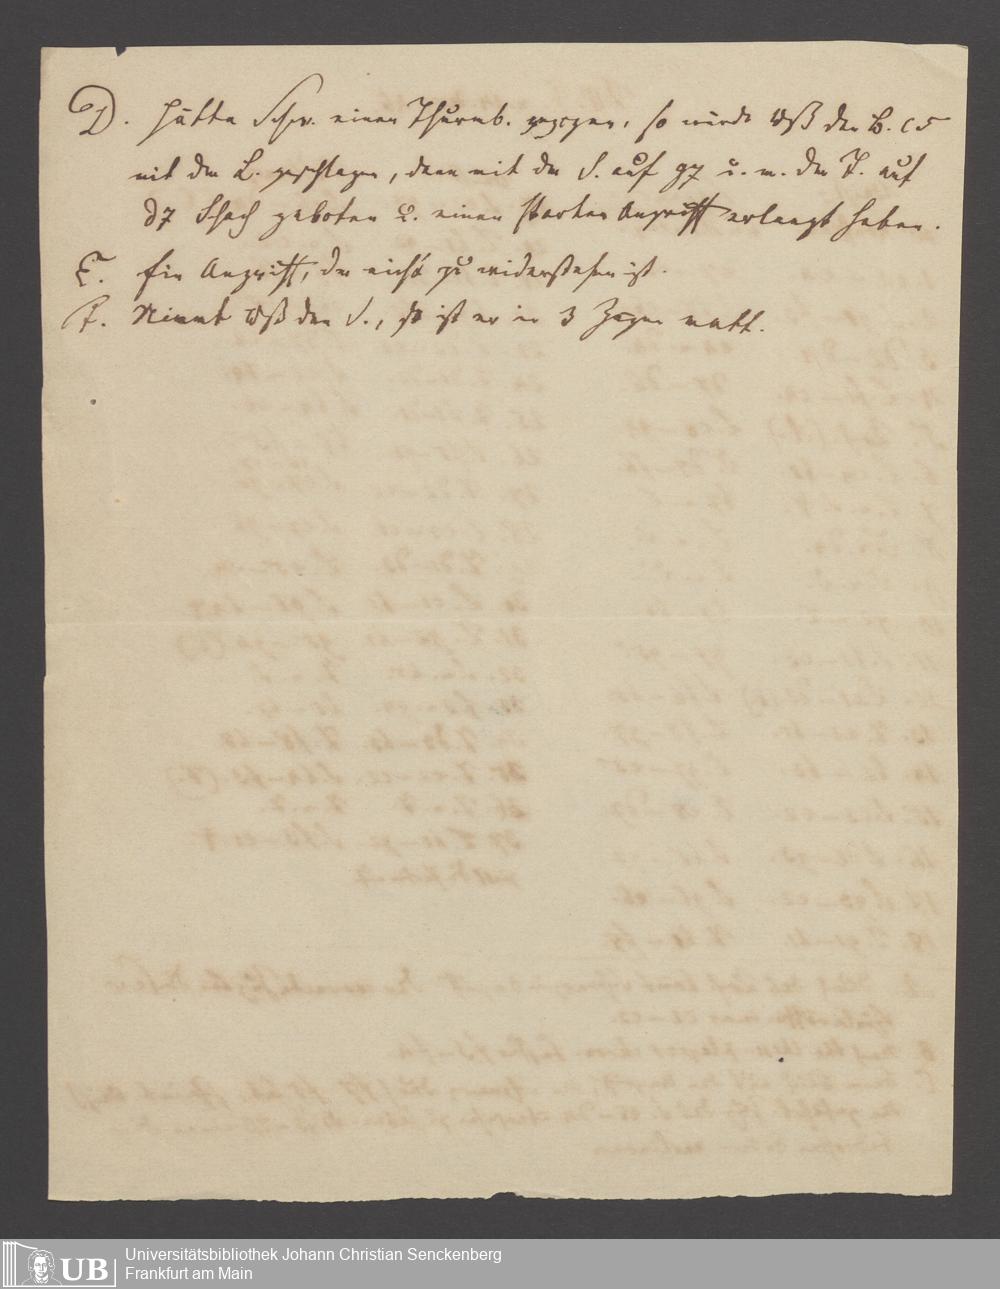 D. Hätte Schw. einen Thurmb. gezogen, so würde Wß den B. c5
mit dem L. geschlagen, dann mit der D. auf g7 u. m. dem T. auf
d7 Schach geboten u. einen starken Angriff erlangt haben.
E. Ein Angriff, der nicht zu widerstehen ist.
F. Nimmt Wß den S., so ist er in 3 Zügen matt.
Universitätsbibliothek Johann Christian Senckenberg
Frankfurt am Main
UB